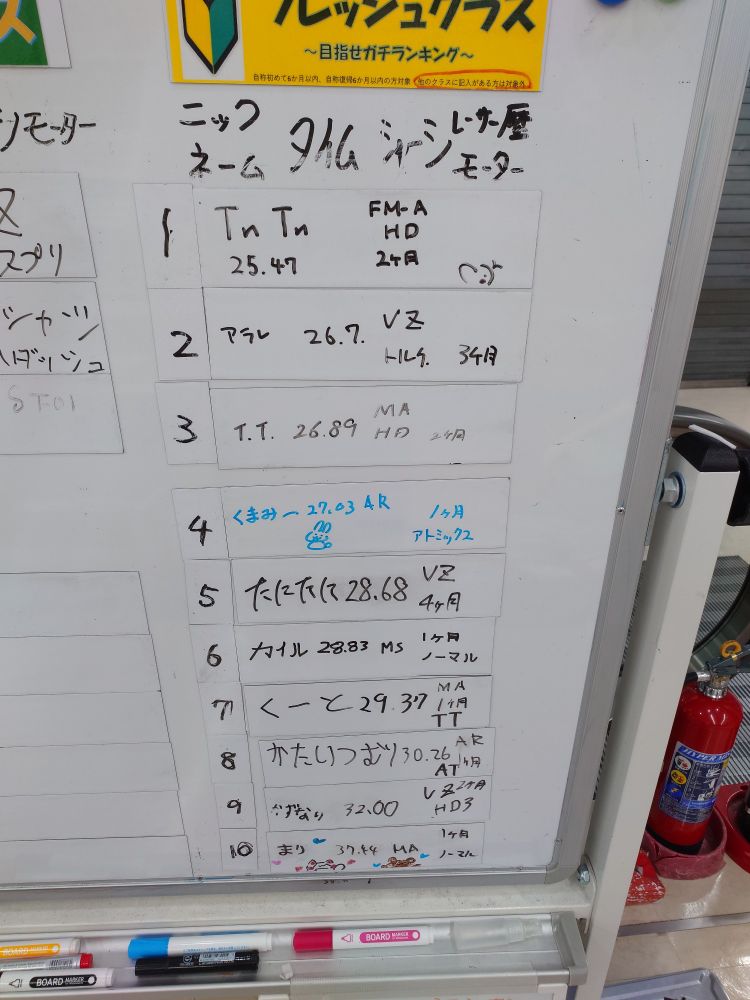 フレッシュクラス
～目指せガチランキング～
自称初めて6か月以内、自称復帰6か月以内の方対象 他のクラスに記入がある方は対象外
モーター
スプリ
シャツ
ST01
ニックネーム タイム シャーシ レーサー歴 モーター
1 Tn Tn FM-A
HD
25.47 2ヶ月
2 アラレ 26.7. VZ
トルク. 3ヶ月
3 T.T. 26.89 MA
HD 2ヶ月
4 くまみー 27.03 AR 1ヶ月
アトミック2
5 たにたに 28.68 VZ
4ヶ月
6 カイル 28.83 MS 1ヶ月
ノーマル
7 くーと 29.37 MA
1ヶ月
TT
8 かたいつむり 30.26 AR
AT 1ヶ月
9 32.00 VZ 2ヶ月
HD3
10 まり 37.44 MA 1ヶ月
ノーマル
BOARD MARKER
BOARD MARKER
HYPER